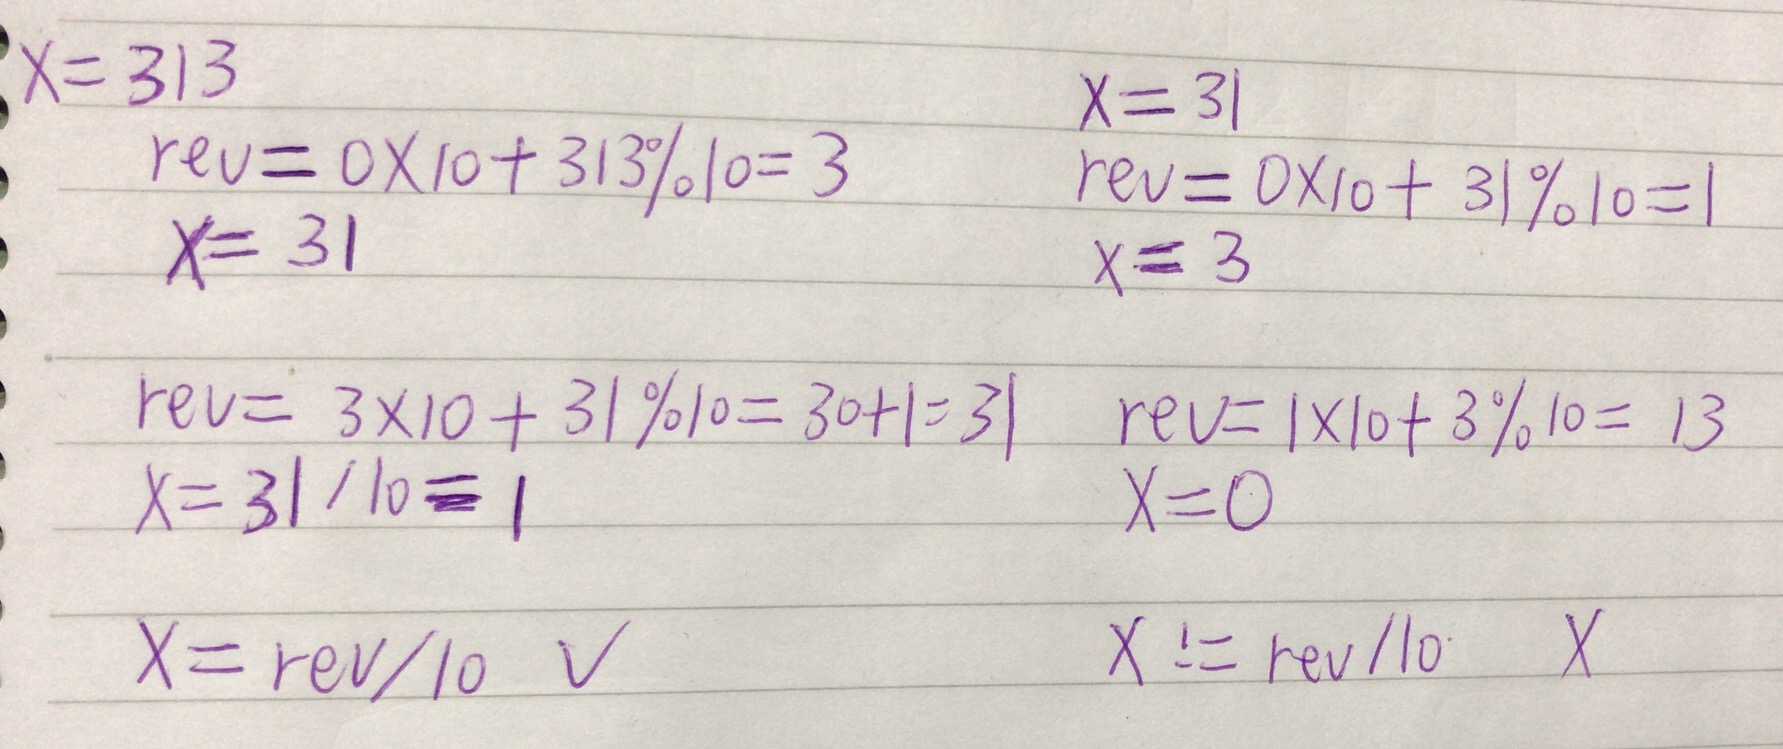 X=313
rev=0X10+313%10=3
X=31
rev=3X10+31%10=30+1=31
X=31/10=1
X=rev/10 ✓
X=31
rev=0X10+31%10=1
X=3
rev=1X10+3%10=13
X=0
X!=rev/10 X